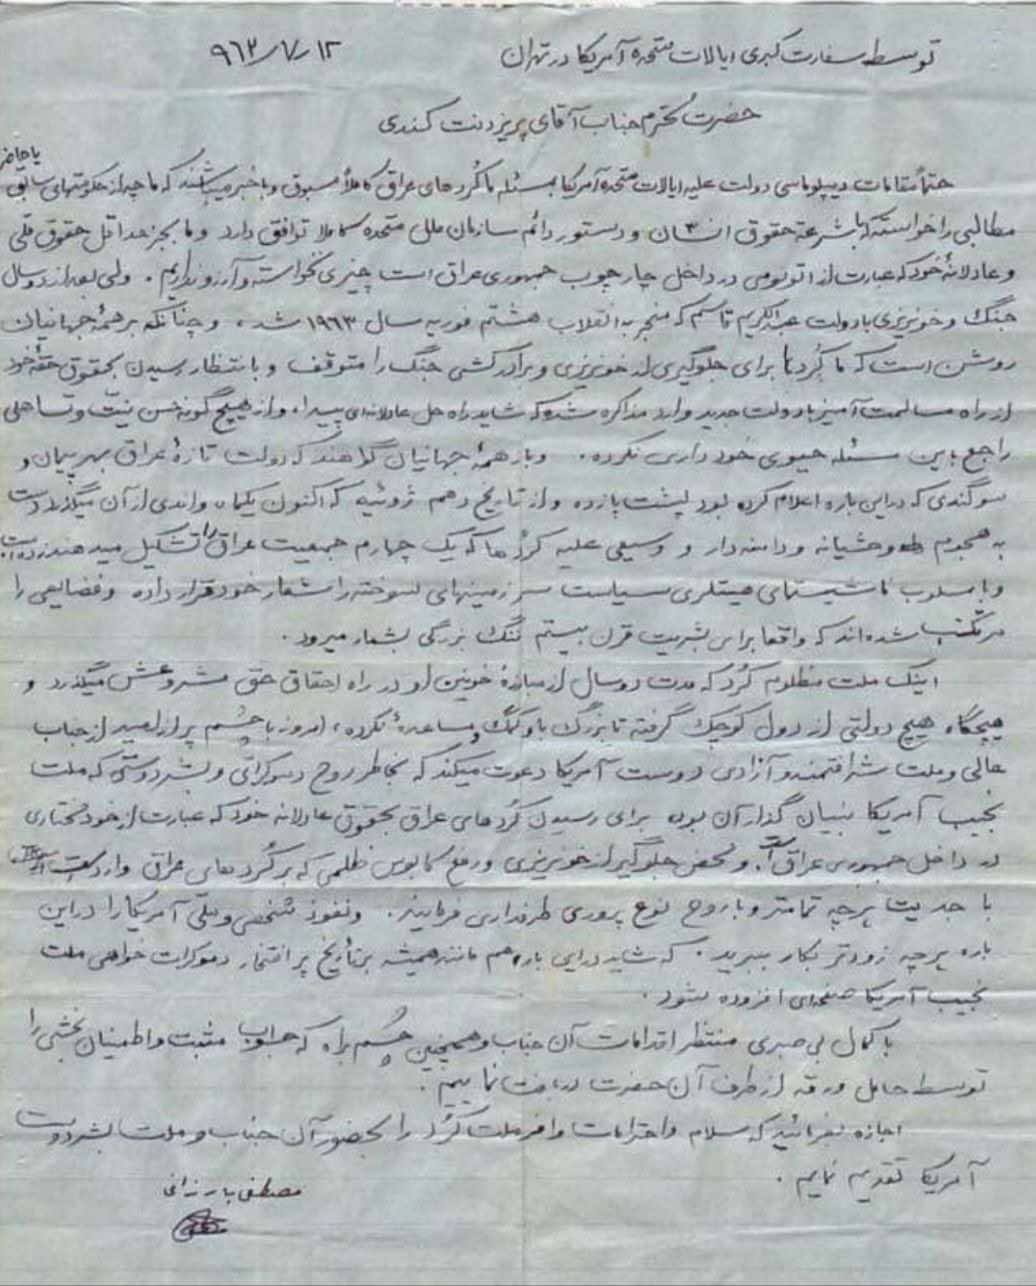 توسط سفارت کبری ایالات متحده آمریکا در تهران ۹۶۳/۷/۱۲
حضرت محترم جناب آقای پریزدنت کندی
حتماً مقامات دیپلوماسی دولت علیه ایالات متحده آمریکا بمسئله ما کُردهای عراق کاملاً مسبوق و باخبر میباشند که ما چه از حکومتهای سابق یا حاضر
مطالبی را خواسته که با شرعهٔ حقوق انسان و دستور دائم سازمان ملل متحده کاملا توافق دارد و ما بجز حداقل حقوق ملی
و عادلانهٔ خود که عبارت از اتونومی در داخل چارچوب جمهوری عراق است چیزی نخواسته و آرزو نداریم. ولی بعد از دو سال
جنگ و خونریزی با دولت عبدالکریم قاسم که منجر به انقلاب هشتم فوریه سال ۱۹۶۳ شد، و چنانکه بر همهٔ جهانیان
روشن است که ما کُردها برای جلوگیری از خونریزی و برادرکشی جنگ را متوقف و با انتظار رسیدن بحقوق حقهٔ خود
از راه مسالمت آمیز با دولت جدید وارد مذاکره شده که شاید راه حل عادلانه‌ای پیدا، و از هیچ گونه حسن نیت و تساهلی
راجع باین مسئله حیوی خودداری نکرده. و باز همهٔ جهانیان گواهند که دولت تازهٔ عراق بهر پیمان و
سوگندی که در این باره اعلام کرده بود پشت پا زده و از تاریخ دهم ژوئیه که اکنون یکماه و اندی از آن میگذرد دست
به هجوم وحشیانه و دامنه‌دار و وسیعی علیه کردها که یک چهارم جمعیت عراق را تشکیل میدهند زده است
و با اسلوب فاشیستهای هیتلری سیاست سرزمینهای سوخته را شعار خود قرار داده و فضایعی را
مرتکب شده‌اند که واقعا برای بشریت قرن بیستم ننگ بزرگی بشمار میرود.
اینک ملت مظلوم کُرد که مدت دو سال از مبارزهٔ خونین او در راه احقاق حق مشروعش میگذرد و
هیچگاه هیچ دولتی از دول کوچک گرفته تا بزرگ باو کمک و مساعدهٔ نکرده، امروز با چشم پر از امید از جناب
عالی و ملت شرافتمند و آزادی دوست آمریکا دعوت میکند که بخاطر روح دموکراتی و بشر دوستی که ملت
نجیب آمریکا بنیان گذار آن بوده برای رسیدن کُردهای عراق بحقوق عادلانه خود که عبارت از خود مختاری
در داخل جمهوری عراق است. و محض جلوگیری از خونریزی و رفع کابوس ظلمی که بر کُردهای عراق وارد
با جدیت هرچه تمامتر و با روح نوع پروری طرفداری فرمایند. و نفوذ شخصی و ملی آمریکا را در این
باره هرچه زودتر بکار ببرید. که شاید در این باره هم مانند همیشه بتأریخ پر افتخار دموکرات خواهی ملت
نجیب آمریکا صفحه‌ای افزوده شود.
با کمال بی صبری منتظر اقدامات آن جناب و همچنین چشم براه که جواب مثبت و اطمینان بخشی را
توسط حامل ورقه از طرف آن حضرت دریافت نماییم.
اجازه بفرمائید که سلام و احترامات وافر ملت کُرد را بحضور آن جناب و ملت بشر دوست
آمریکا تقدیم نمایم.
مصطفی بارزانی